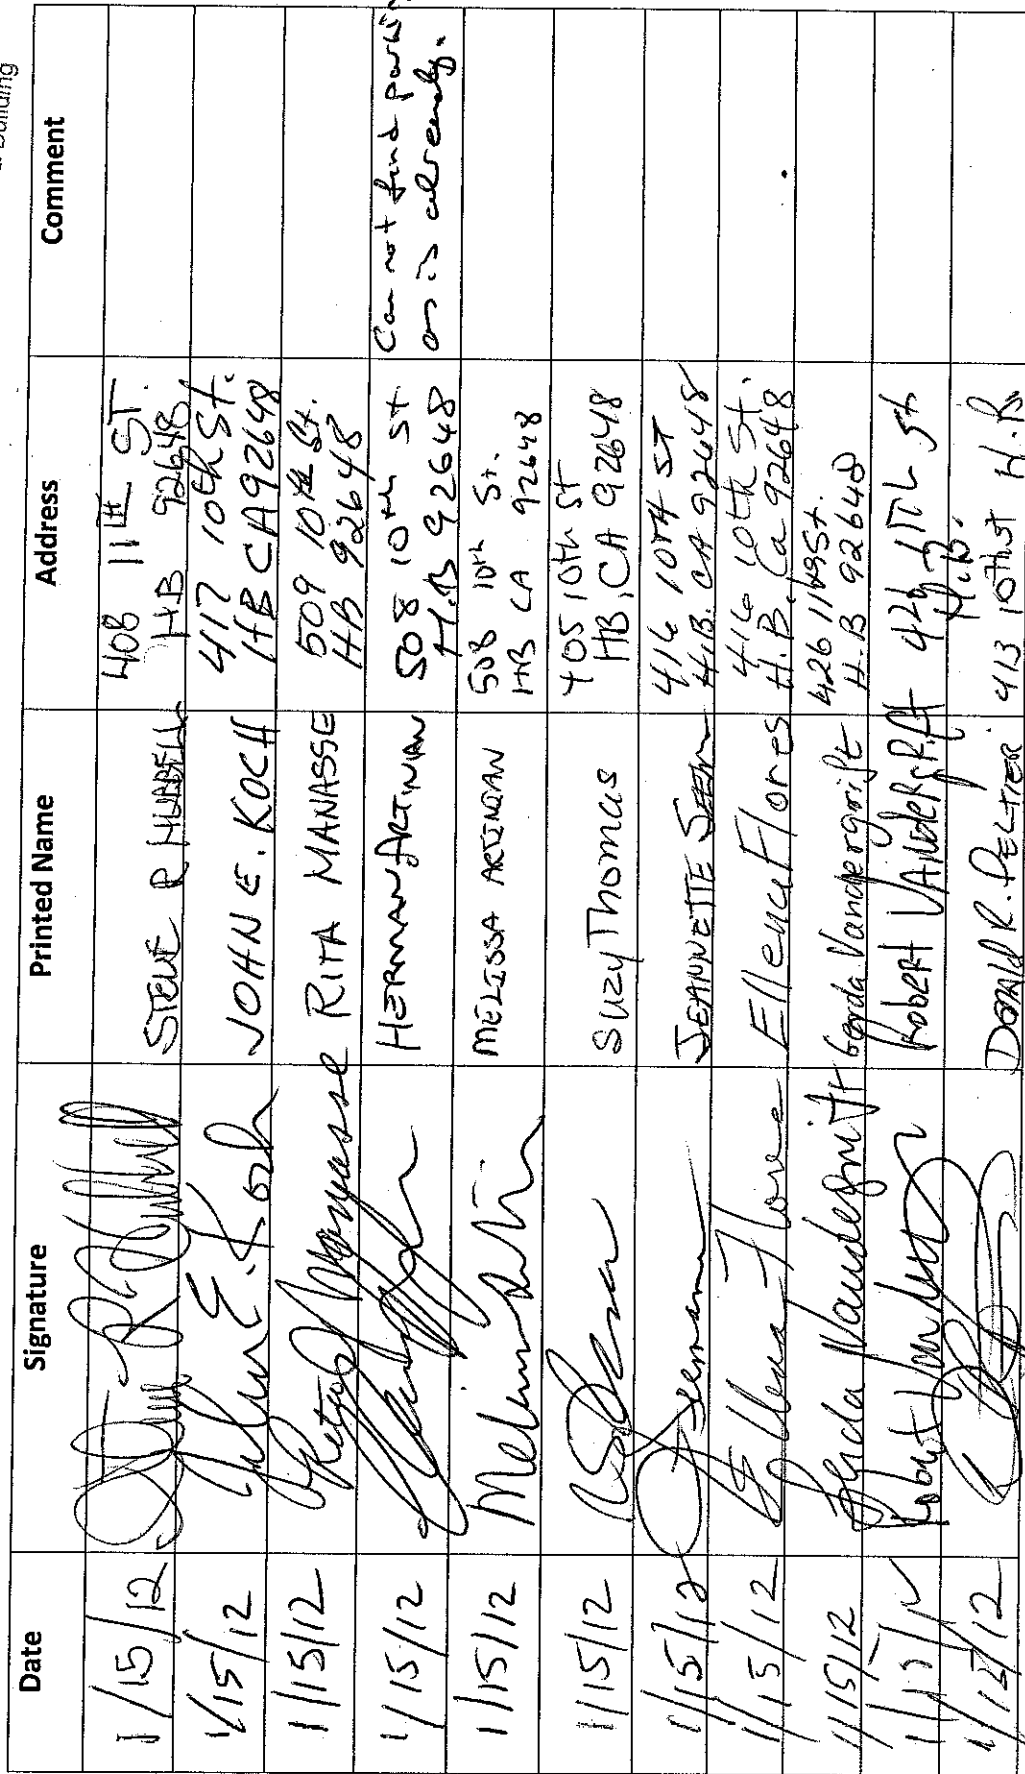 Building
Date Signature Printed Name Address Comment
1/15/12 STEVE R HUBBELL 408 11TH ST.
HB 92648
1/15/12 John E. Koch JOHN E. KOCH 417 10th St.
HB CA 92648
1/15/12 Rita Manasse RITA MANASSE 509 10th St.
HB 92648
1/15/12 HERMAN ARTINIAN 508 10th St Can not find parking
H.B 92648 as is already.
1/15/12 MELISSA ARTINIAN 508 10th St.
HB CA 92648
1/15/12 Suzy Thomas 405 10th St
HB, CA 92648
1/15/12 JEANNETTE 416 10TH ST
H.B. CA 92648
1/15/12 Ellena Flores Ellena Flores 416 10th St.
H.B. Ca 92648
1/15/12 Vandergrift Vandergrift 426 11th St.
H.B 92648
1/15/12 Robert Robert Vandergrift 426 11TH St
H.B.
1/15/12 DONALD R. PELTIER 413 10th St H.B.